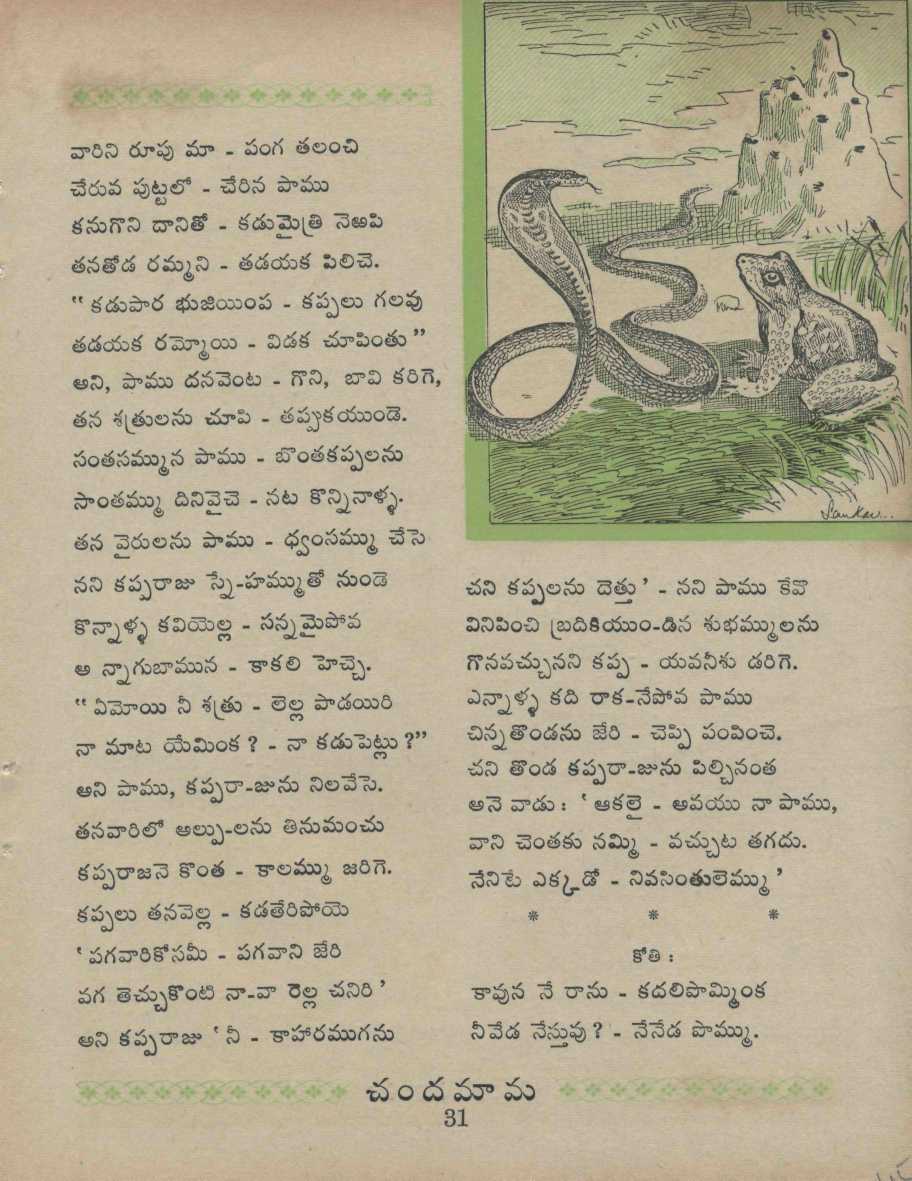 వారిని రూపు మా - పంగ తలంచి
చేరువ పుట్టలో - చేరిన పాము
కనుగొని దానితో - కడుమైత్రి నెఱపి
తనతోడ రమ్మని - తడయక పిలిచె.
“ కడుపార భుజియింప - కప్పలు గలవు
తడయక రమ్మోయి - విడక చూపింతు ”
అని, పాము దనవెంట - గొని, బావి కరిగె,
తన శత్రులను చూపి - తప్పుకయుండె.
సంతసమ్మున పాము - బొంతకప్పలను
సాంతమ్ము దినివైచె - నట కొన్నినాళ్ళ.
తన వైరులను పాము - ధ్వంసమ్ము చేసె
నని కప్పరాజు స్నే-హమ్ముతో నుండె
కొన్నాళ్ళ కవియెల్ల - సన్నమైపోవ
అ న్నాగుబామున - కాకలి హెచ్చె.
“ ఏమోయి నీ శత్రు - లెల్ల పాడయిరి
నా మాట యేమింక ? - నా కడుపెట్లు ?”
అని పాము, కప్పరా-జును నిలవేసె.
తనవారిలో అల్పు-లను తినుమంచు
కప్పరాజనె కొంత - కాలమ్ము జరిగె.
కప్పలు తనవెల్ల - కడతేరిపోయె
‘ పగవారికోసమీ - పగవాని జేరి
వగ తెచ్చుకొంటి నా-వా రెల్ల చనిరి ’
అని కప్పరాజు ‘ నీ - కాహారముగను
Sankar..
చని కప్పలను దెత్తు ’ - నని పాము కేవొ
వినిపించి బ్రదికియుం-డిన శుభమ్ములను
గొనవచ్చునని కప్ప - యవనీశు డరిగె.
ఎన్నాళ్ళ కది రాక-నేపోవ పాము
చిన్నతొండను జేరి - చెప్పి పంపించె.
చని తొండ కప్పరా-జును పిల్చినంత
అనె వాడు : ‘ ఆకలై - అవయు నా పాము,
వాని చెంతకు నమ్మి - వచ్చుట తగదు.
నేనిటే ఎక్కడో - నివసింతులెమ్ము ’
* * *
కోతి :
కావున నే రాను - కదలిపొమ్మింక
నీవేడ నేస్తువు ? - నేనేడ పొమ్ము.
చందమామ
31